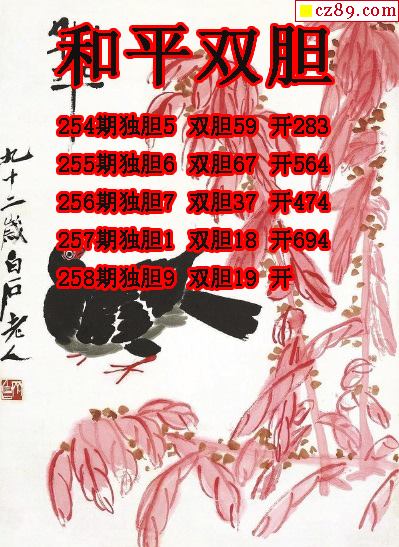 cz89.com
和平双胆
254期独胆5 双胆59 开283
255期独胆6 双胆67 开564
256期独胆7 双胆37 开474
257期独胆1 双胆18 开694
258期独胆9 双胆19 开
九十二岁白石老人